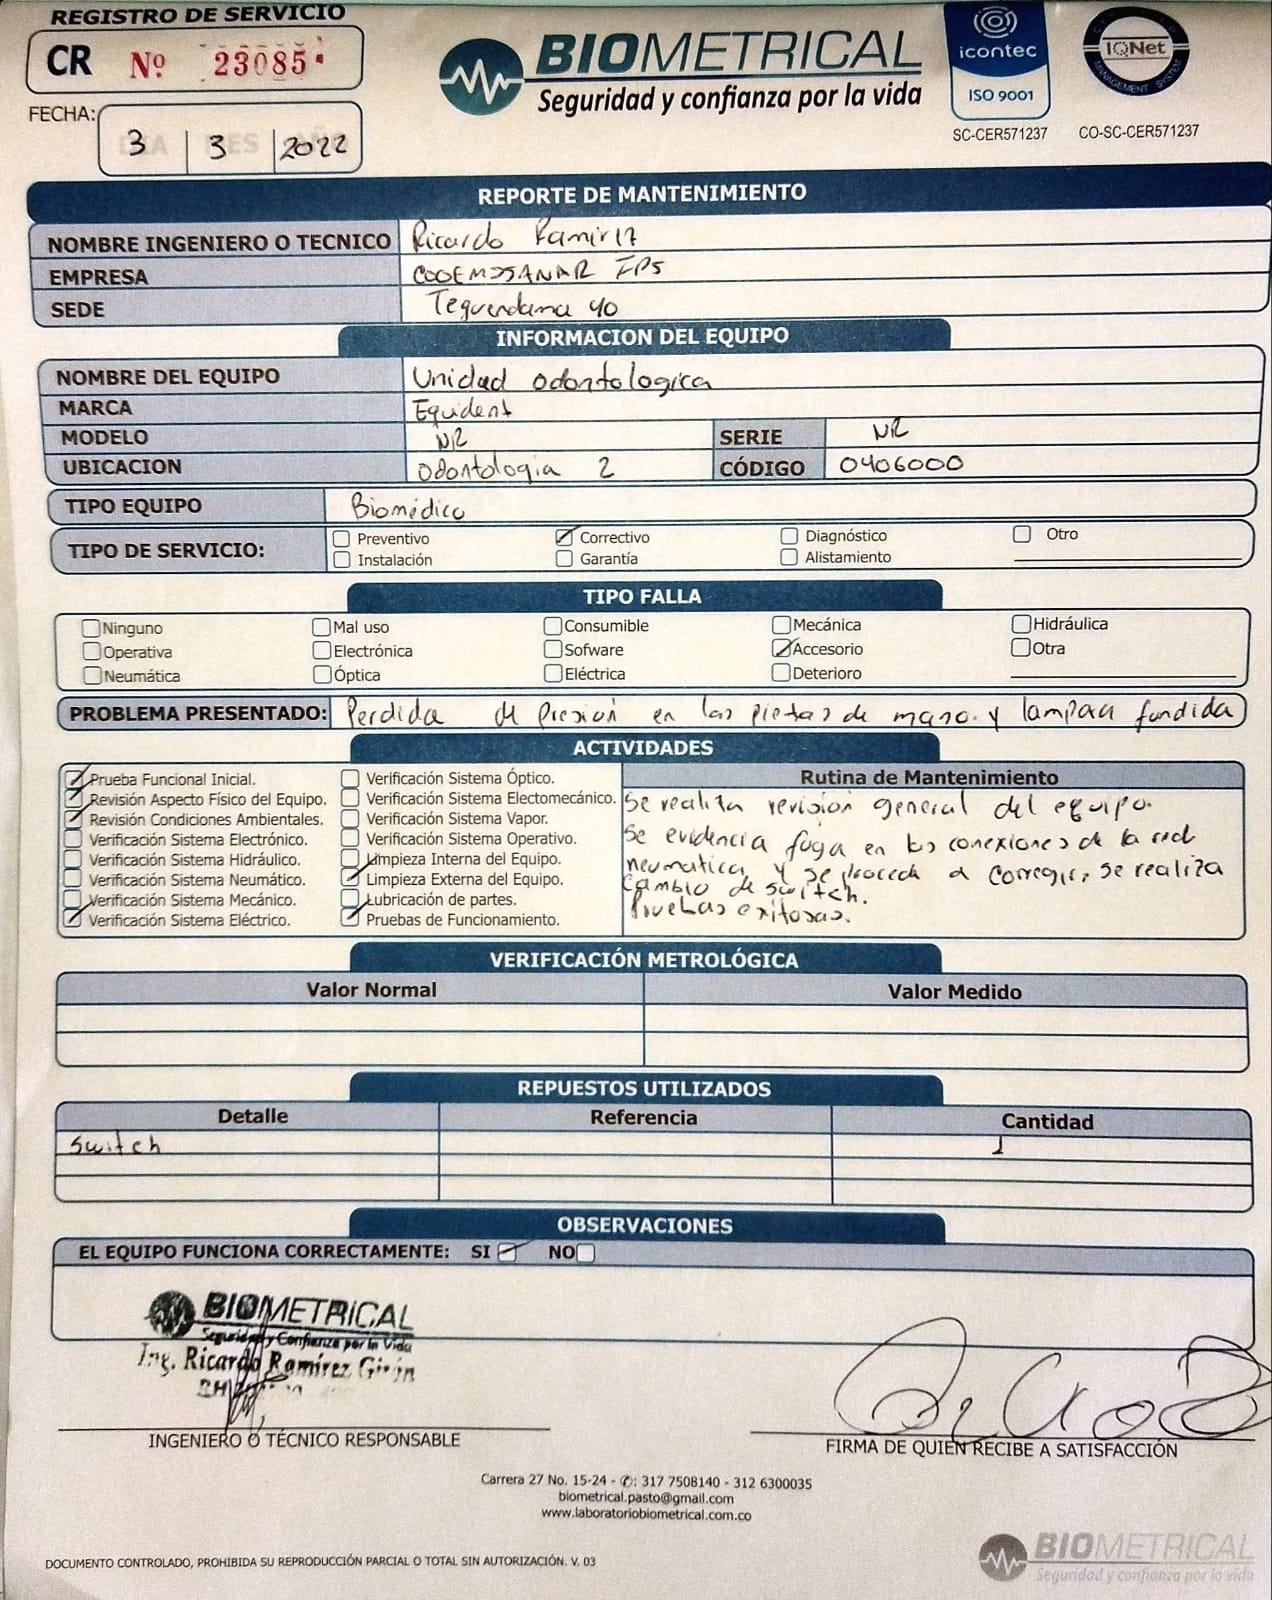 REGISTRO DE SERVICIO
CR Nº 23085
FECHA: 3 3 2022
BIOMETRICAL
Seguridad y confianza por la vida
icontec
ISO 9001
SC-CER571237
IQNet
MANAGEMENT SYSTEM
CO-SC-CER571237
REPORTE DE MANTENIMIENTO
NOMBRE INGENIERO O TECNICO Ricardo Ramirez
EMPRESA COOEMSSANAR IPS
SEDE Tequendama 40
INFORMACION DEL EQUIPO
NOMBRE DEL EQUIPO Unidad odontologica
MARCA Equident
MODELO NR SERIE NR
UBICACION Odontologia 2 CÓDIGO 0406000
TIPO EQUIPO Biomédico
TIPO DE SERVICIO:
Preventivo Correctivo Diagnóstico Otro
Instalación Garantía Alistamiento
TIPO FALLA
Ninguno Mal uso Consumible Mecánica Hidráulica
Operativa Electrónica Sofware Accesorio Otra
Neumática Óptica Eléctrica Deterioro
PROBLEMA PRESENTADO: Perdida de presion en las piezas de mano. y lampara fundida
ACTIVIDADES
Prueba Funcional Inicial.
Revisión Aspecto Físico del Equipo.
Revisión Condiciones Ambientales.
Verificación Sistema Electrónico.
Verificación Sistema Hidráulico.
Verificación Sistema Neumático.
Verificación Sistema Mecánico.
Verificación Sistema Eléctrico.
Verificación Sistema Óptico.
Verificación Sistema Electomecánico.
Verificación Sistema Vapor.
Verificación Sistema Operativo.
Limpieza Interna del Equipo.
Limpieza Externa del Equipo.
Lubricación de partes.
Pruebas de Funcionamiento.
Rutina de Mantenimiento
Se realiza revision general del equipo.
Se evidencia fuga en las conexiones de la red
neumatica, y se procede a corregir, se realiza
cambio de switch.
Pruebas exitosas.
VERIFICACIÓN METROLÓGICA
Valor Normal Valor Medido
REPUESTOS UTILIZADOS
Detalle Referencia Cantidad
Switch 1
OBSERVACIONES
EL EQUIPO FUNCIONA CORRECTAMENTE: SI NO
BIOMETRICAL
Seguridad y Confianza por la Vida
Ing. Ricardo Ramírez Girón
INGENIERO O TÉCNICO RESPONSABLE
FIRMA DE QUIEN RECIBE A SATISFACCIÓN
Carrera 27 No. 15-24 - ✆: 317 7508140 - 312 6300035
biometrical.pasto@gmail.com
www.laboratoriobiometrical.com.co
DOCUMENTO CONTROLADO, PROHIBIDA SU REPRODUCCIÓN PARCIAL O TOTAL SIN AUTORIZACIÓN. V. 03
BIOMETRICAL
Seguridad y confianza por la vida